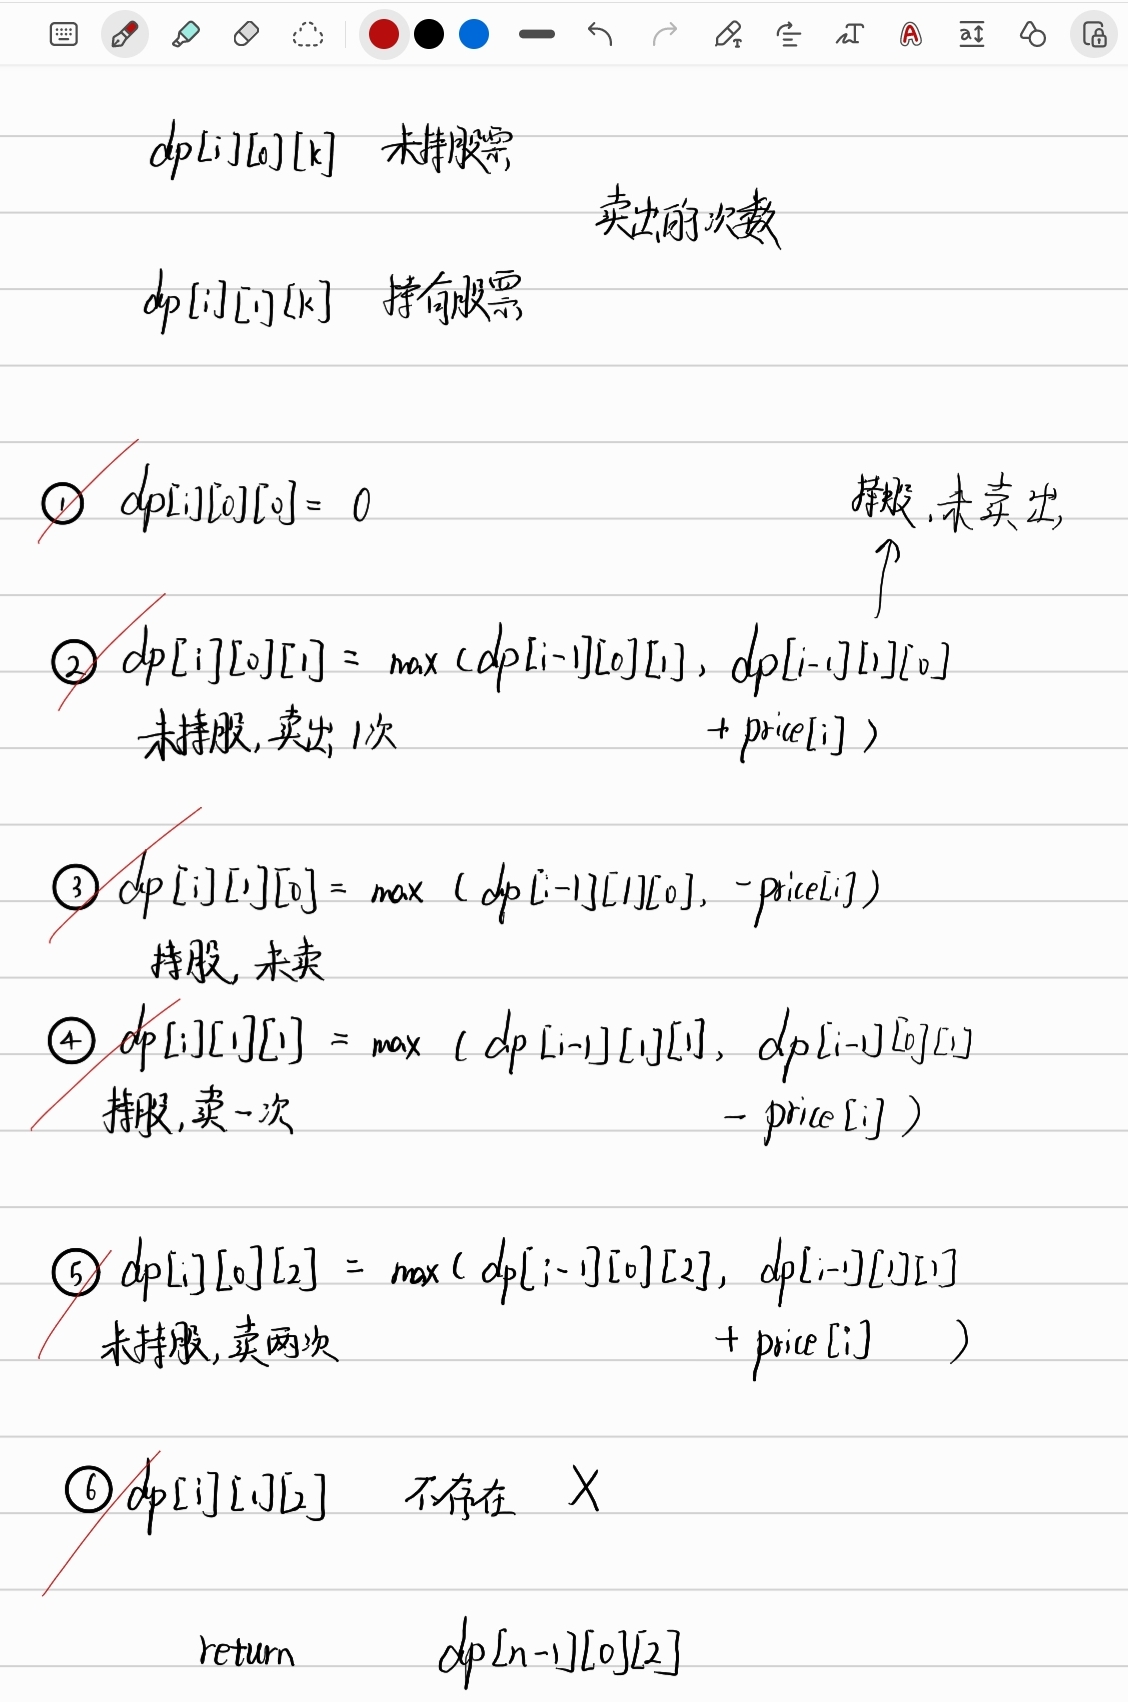 dp[i][0][k] 未持股票
卖出的次数
dp[i][1][k] 持有股票
① dp[i][0][0] = 0
持股,未卖出
② dp[i][0][1] = max (dp[i-1][0][1], dp[i-1][1][0]
未持股,卖出1次 + price[i] )
③ dp[i][1][0] = max (dp[i-1][1][0], -price[i])
持股,未卖
④ dp[i][1][1] = max (dp[i-1][1][1], dp[i-1][0][1]
持股,卖一次 - price[i] )
⑤ dp[i][0][2] = max (dp[i-1][0][2], dp[i-1][1][1]
未持股,卖两次 + price[i] )
⑥ dp[i][1][2] 不存在 X
return dp[n-1][0][2]